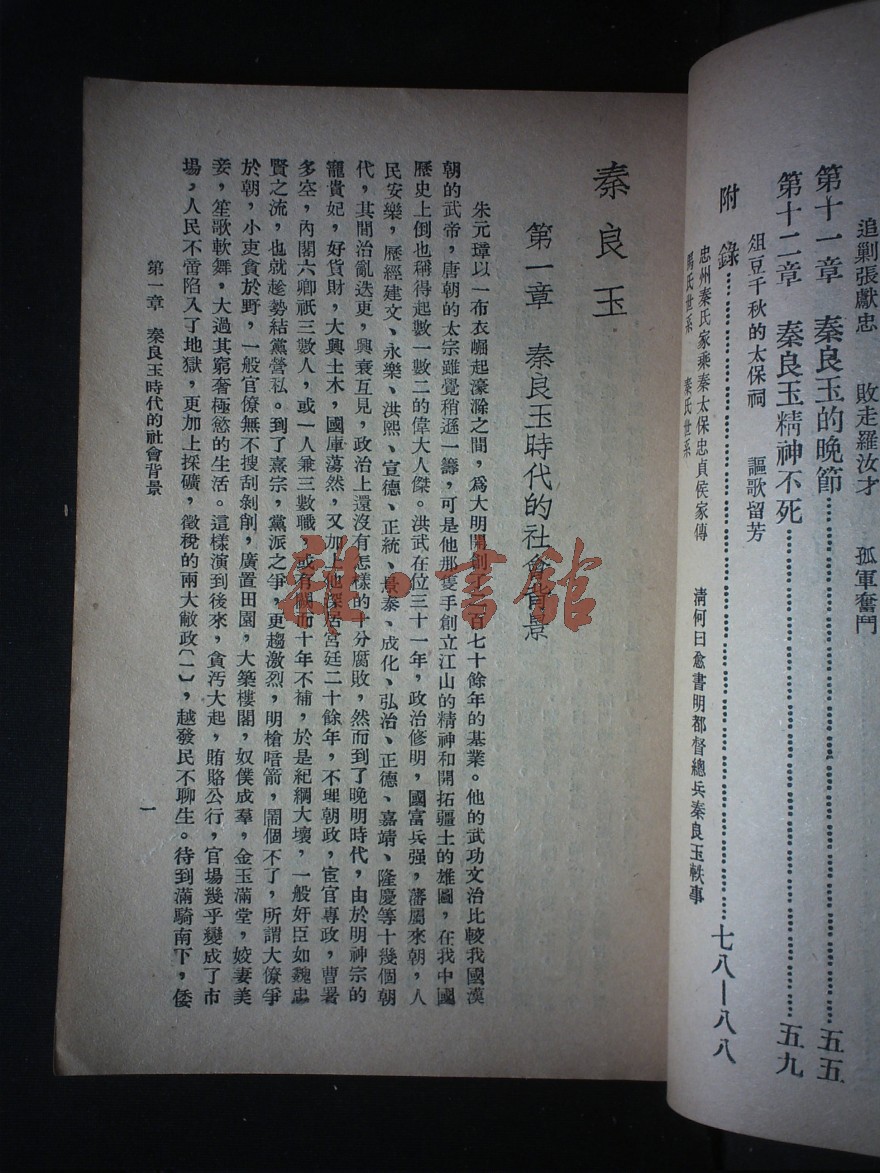 追剿張獻忠　敗走羅汝才　孤軍奮鬥
第十一章　秦良玉的晚節……五五
第十二章　秦良玉精神不死……五九
俎豆千秋的太保祠　謳歌留芳
附錄……七八—八八
忠州秦氏家乘秦太保忠貞侯家傳　清何曰愈書明都督總兵秦良玉軼事
馬氏世系　秦氏世系
秦良玉
第一章　秦良玉時代的社會背景
朱元璋以一布衣崛起濠滁之間，爲大明開創了二百七十餘年的基業。他的武功文治比較我國漢
朝的武帝，唐朝的太宗雖覺稍遜一籌，可是他那隻手創立江山的精神和開拓疆土的雄圖，在我中國
歷史上倒也稱得起數一數二的偉大人傑。洪武在位三十一年，政治修明，國富兵强，藩屬來朝，人
民安樂，歷經建文、永樂、洪熙、宣德、正統、景泰、成化、弘治、正德、嘉靖、隆慶等十幾個朝
代，其間治亂迭更，興衰互見，政治上還沒有怎樣的十分腐敗，然而到了晚明時代，由於明神宗的
寵貴妃，好貨財，大興土木，國庫蕩然，又加上他深居宮廷二十餘年，不理朝政，宦官專政，曹署
多空，內閣六卿祇三數人，或一人兼三數職，或有闕而十年不補，於是紀綱大壞，一般奸臣如魏忠
賢之流，也就趁勢結黨營私。到了熹宗，黨派之爭，更趨激烈，明槍暗箭，鬧個不了，所謂大僚爭
於朝，小吏貪於野，一般官僚無不搜刮剝削，廣置田園，大築樓閣，奴僕成羣，金玉滿堂，姣妻美
妾，笙歌軟舞，大過其窮奢極慾的生活。這樣演到後來，貪汚大起，賄賂公行，官場幾乎變成了市
場，人民不啻陷入了地獄，更加上採礦，徵稅的兩大敝政〔一〕，越發民不聊生。待到滿騎南下，倭
第一章　秦良玉時代的社會背景
一
雜·書館